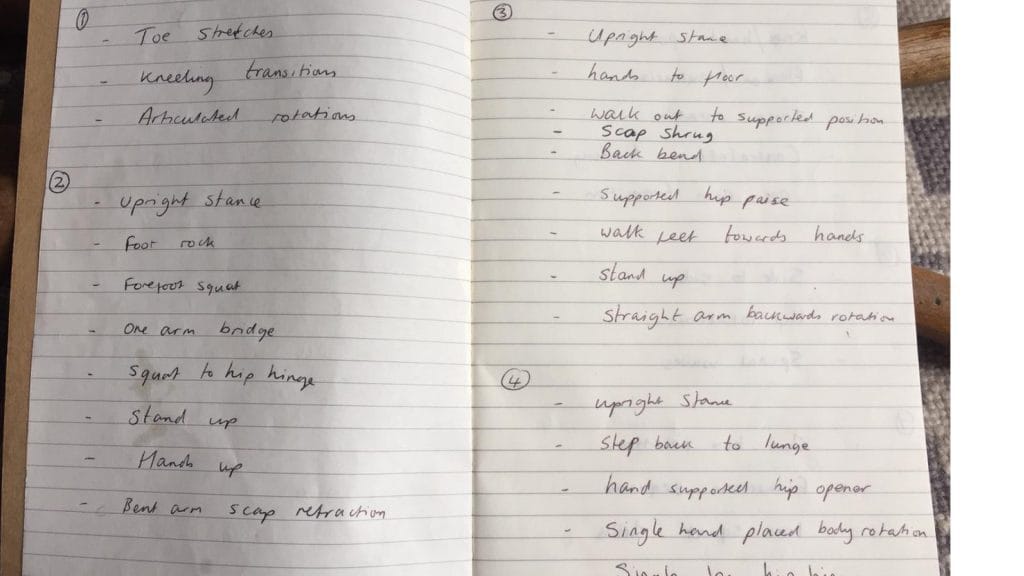 ①
- Toe stretches
- Kneeling transitions
- Articulated rotations
②
- Upright stance
- Foot rock
- Forefoot squat
- One arm bridge
- Squat to hip hinge
- Stand up
- Hands up
- Bent arm scap retraction
③
- Upright stance
- hands to floor
- walk out to supported position
- Scap shrug
- Back bend
- Supported hip raise
- walk feet towards hands
- stand up
- straight arm backwards rotation
④
- upright stance
- step back to lunge
- hand supported hip opener
- Single hand placed body rotation